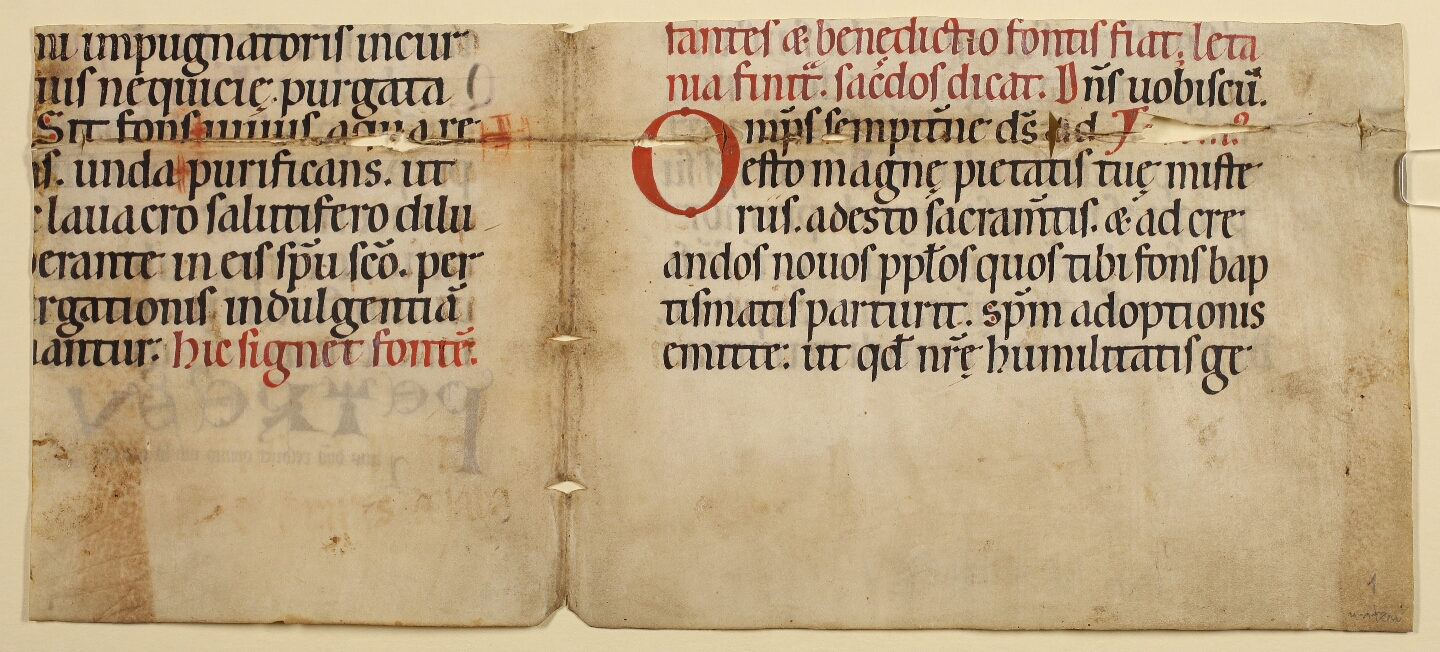 ni impugnatoris incur
uis nequicię. purgata
Sit fons uiuus aqua re
s. unda purificans. ut
lauacro salutifero dilu
erante in eis sp̄u sc̄o. per
rgationis indulgentiā
antur. hic signet fontē.
tantes & benedictio fontis fiat. leta
nia finit̄. sac̄dos dicat. Dn̄s uobiscū.
Omp̄s sempit̄ne ds̄
esto magnę pietatis tuę miste
riis. adesto sacram̄tis. & ad cre
andos nouos ppl̄os quos tibi fons bap
tismatis parturit. sp̄m adoptionis
emitte. ut qđ nr̄ę humilitatis ge
1
unten